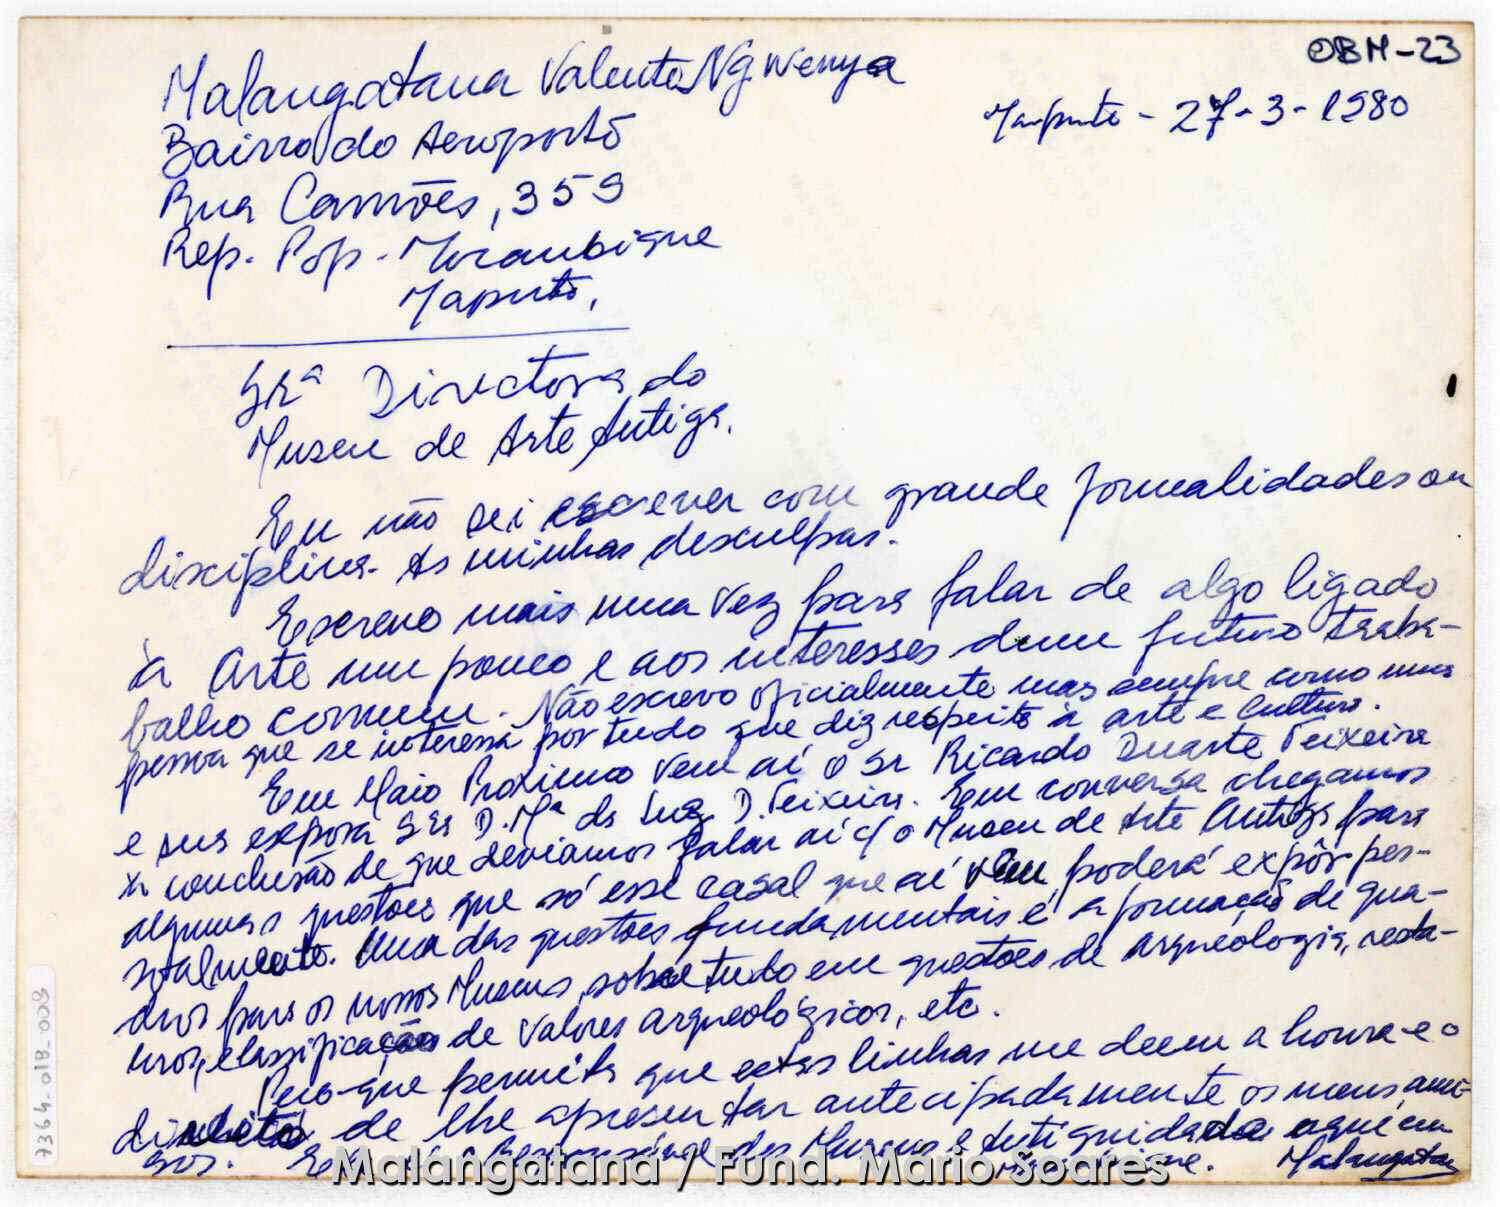 OBM-23
Malangatana Valente Ngwenya
Maputo - 27-3-1980
Bairro do Aeroporto
Rua Camões, 359
Rep. Pop. Mocambique
Maputo,
Srª Directora do
Museu de Arte Antiga.
Eu não sei escrever com grande formalidades ou
disciplina. As minhas desculpas.
Escrevo mais uma vez para falar de algo ligado
à Arte um pouco e aos interesses dum futuro traba-
balho comum. Não escrevo oficialmente mas sempre como uma
pessoa que se interessa por tudo que diz respeito à arte e cultura.
Em Maio Proximo vem aí o Sr Ricardo Duarte Teixeira
e sua esposa Srª D. Mª da Luz D. Teixeira. Em conversa chegamos
à conclusão de que devíamos falar aí c/ o Museu de Arte Antiga para
algumas questões que só esse casal que aí vem poderá expôr pes-
soalmente. Uma das questões fundamentais é a formação de qua-
dros para os nossos Museus, sobretudo em questões de Arqueologia, restau-
ros, classificação de valores arqueológicos, etc.
Peço-que permita que estas linhas me deem a honra e o
direito de lhe apresentar antecipadamente os meus ami-
gos. dos Museus e Antiguidades aqui em
Malangatana
7364-01B-009
Malangatana / Fund. Mário Soares